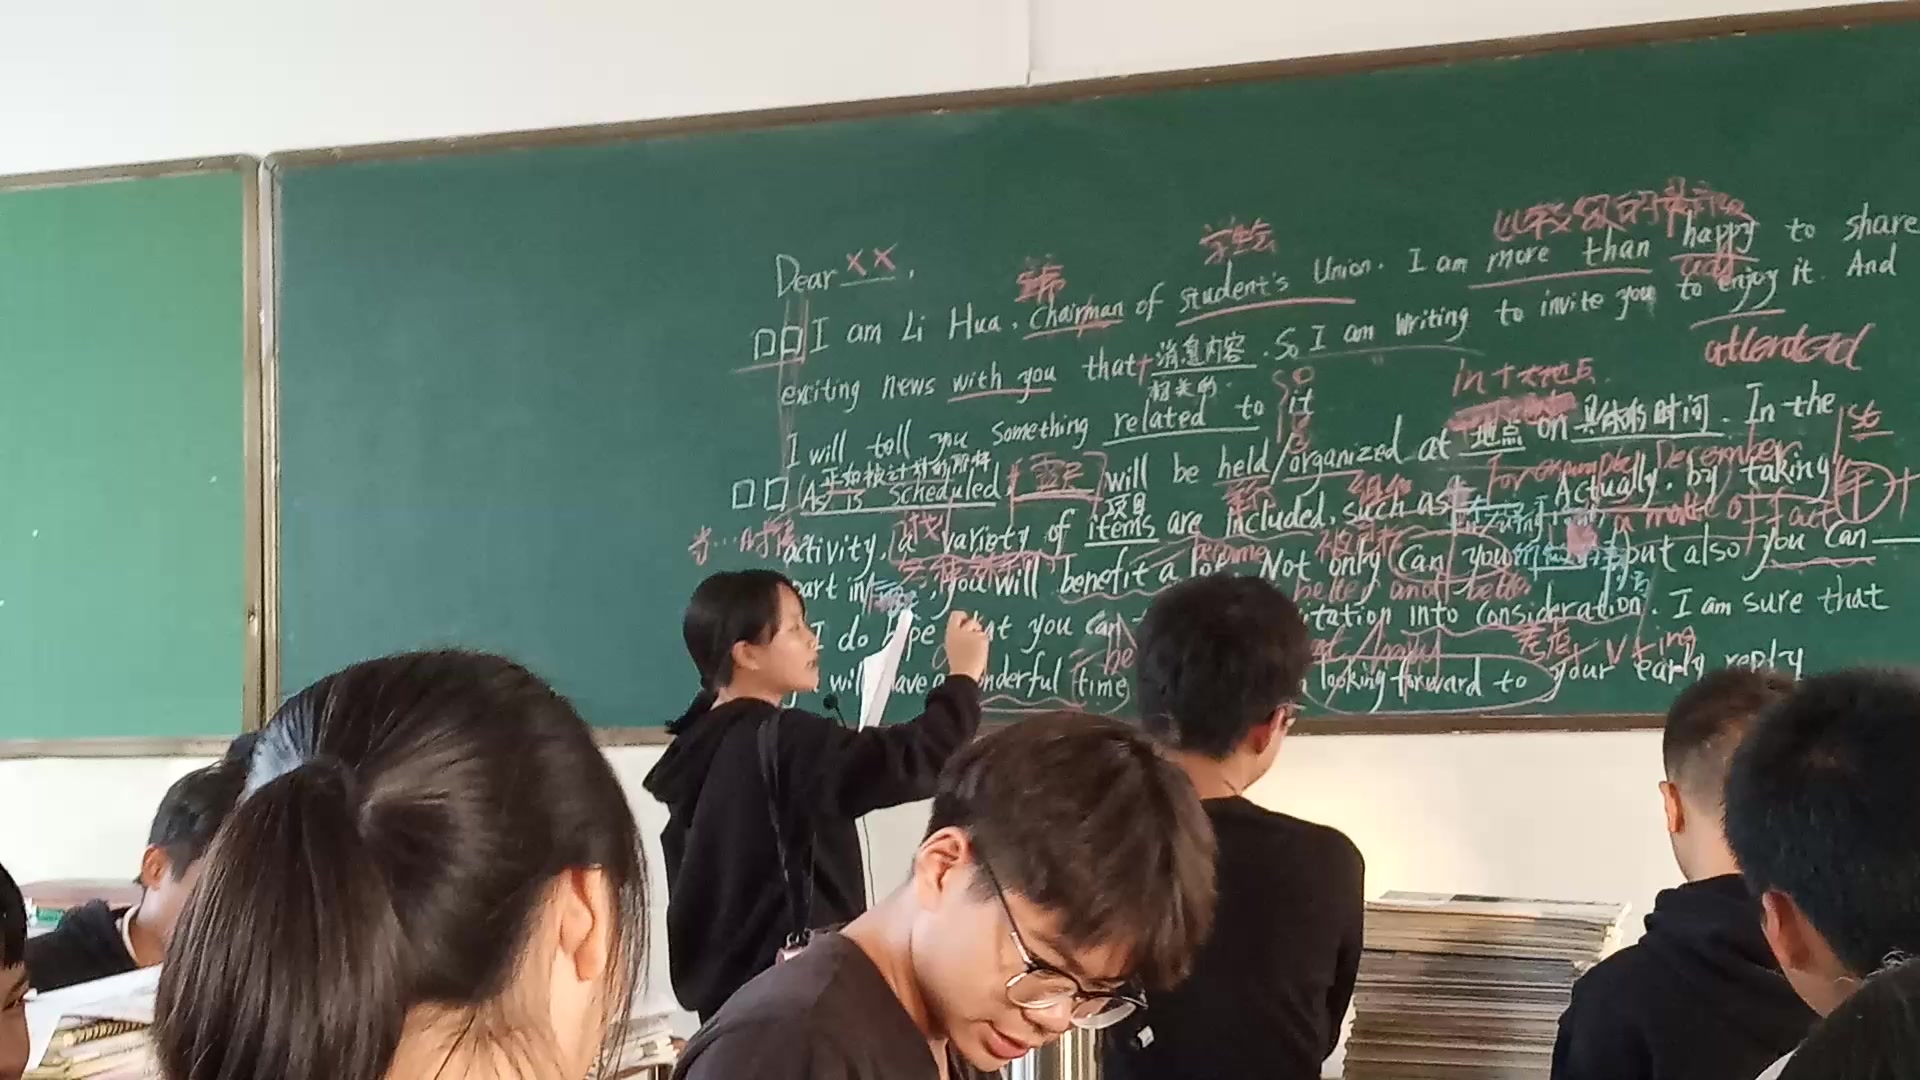 学生会 比较级的最高级
Dear ××,
主席
I am Li Hua, Chairman of student's Union. I am more than happy to share
exciting news with you that + 消息内容. So I am writing to invite you to enjoy it. And
相关的 so in + 大地点 attended
I will tell you something related to it
正如按计划的那样
As is scheduled, will be held/organized at 地点 on 具体的时间. In the
计划 项目 For example December 1st
activity, a variety of items are included, such as Actually, by taking
当…时候 a matter of fact
part in , you will benefit a lot. Not only can you but also you can
better and better
I do hope that you can itation into consideration. I am sure that
考虑 + V + ing
will have a wonderful time looking forward to your early reply